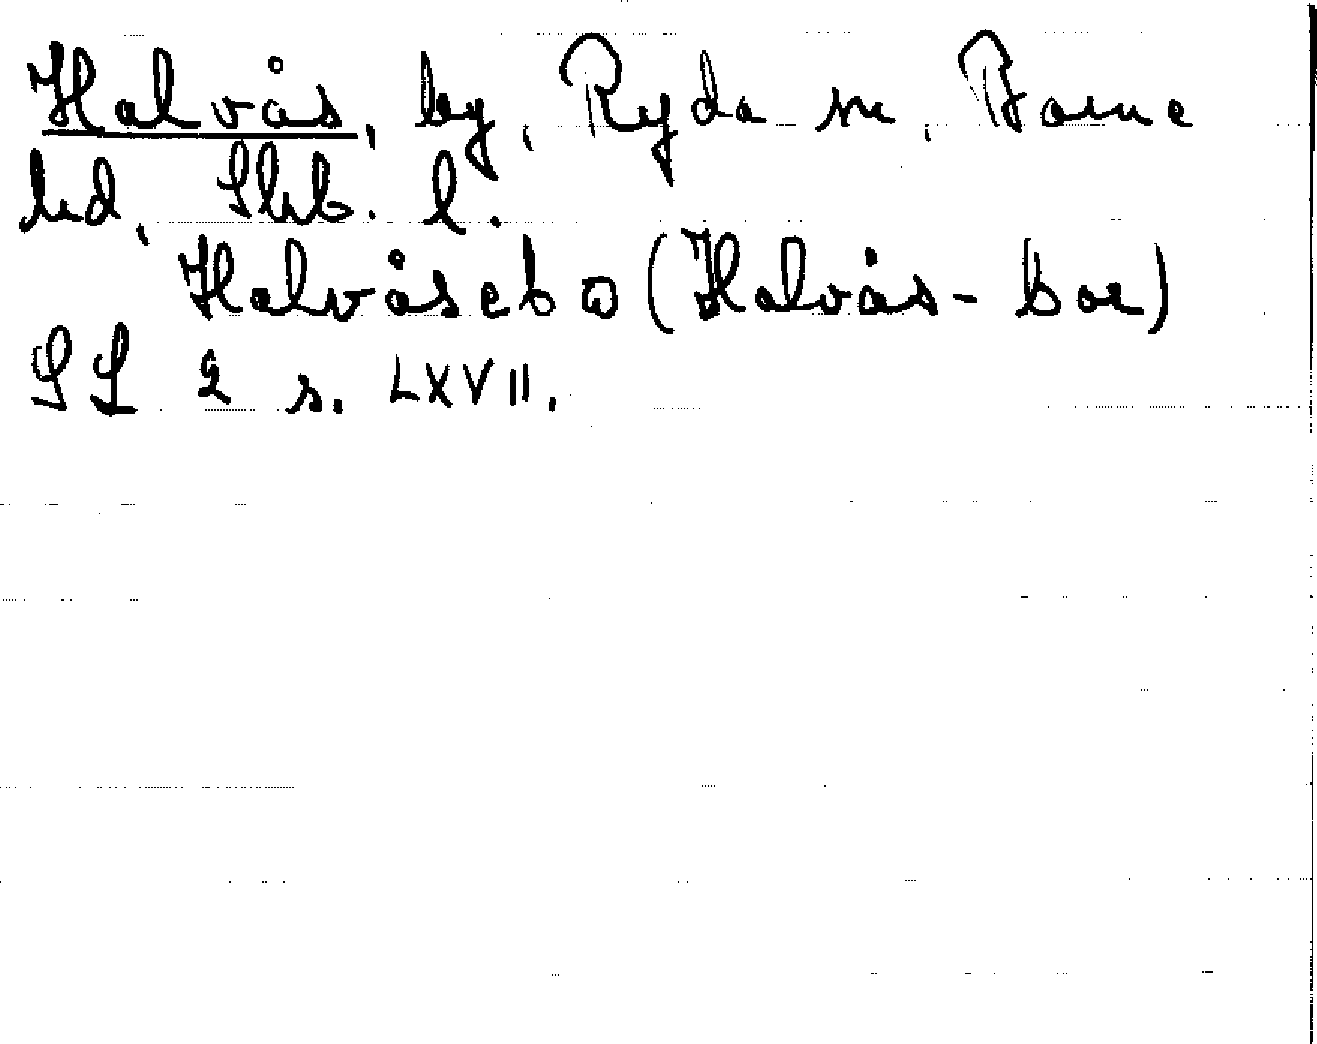 Halvås, by, Ryda sn, Barne
hd, Skb. l.
Halvåsebo (Halvås-bor)
SL 2 s. LXVII.